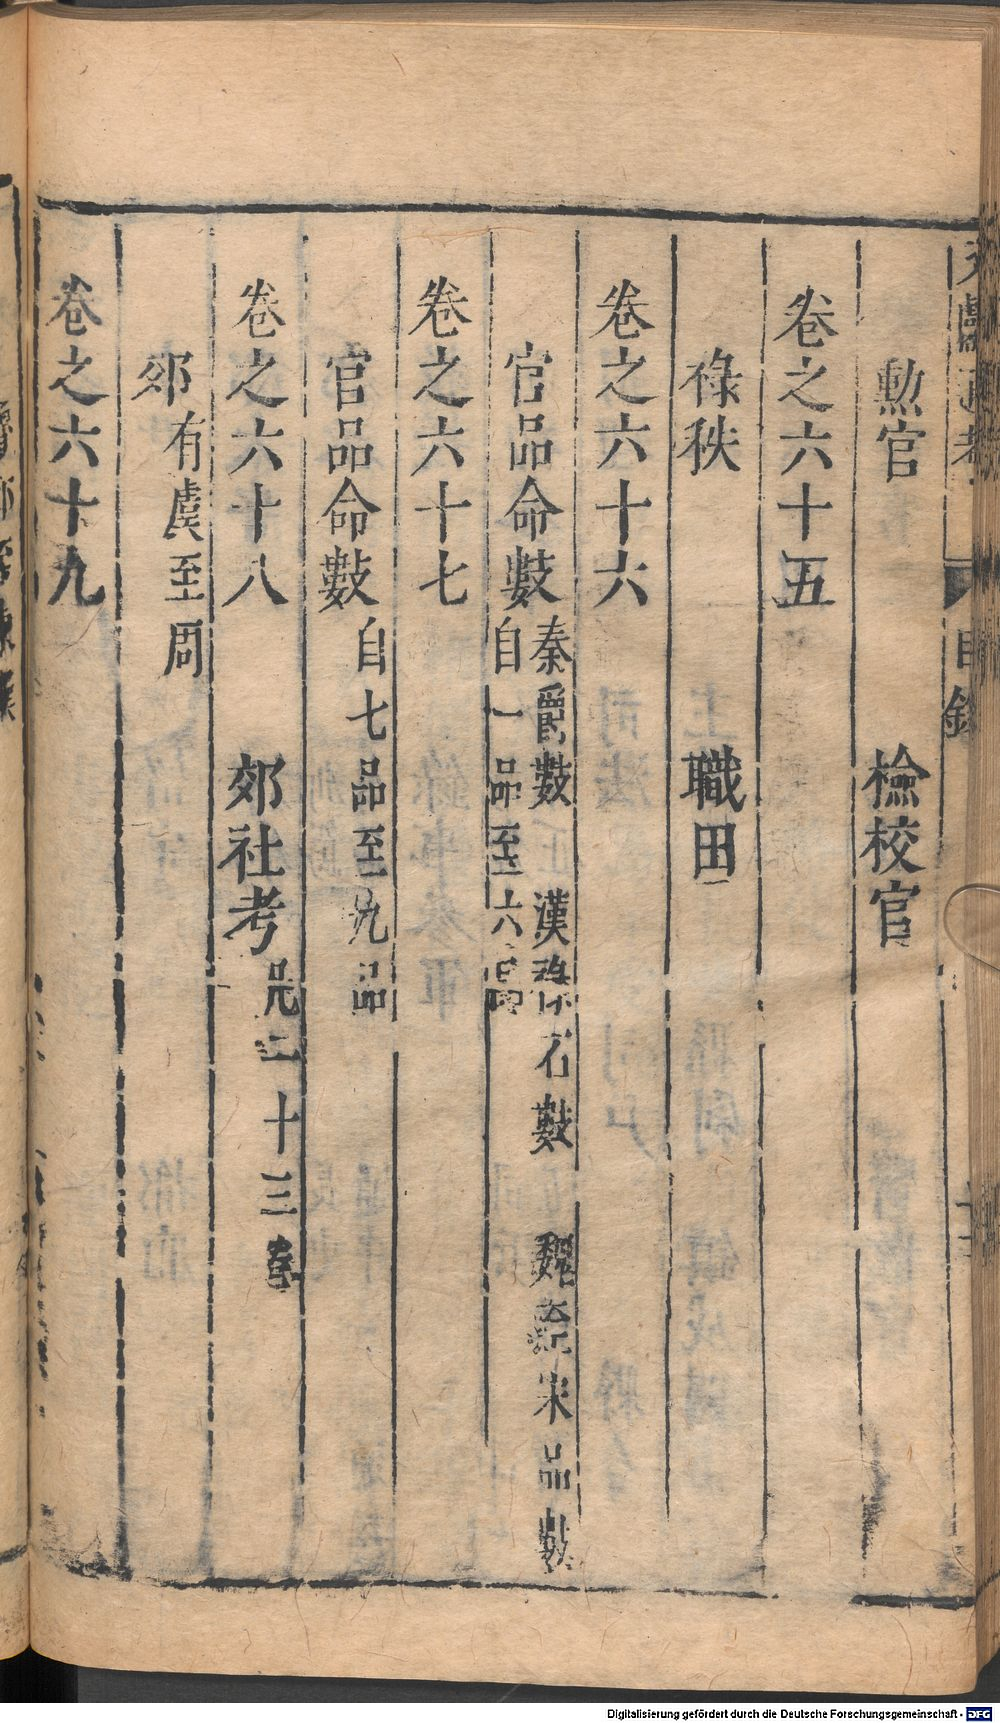 勲官　檢校官
卷之六十五
祿秩　職田
卷之六十六
官品命數
秦爵數　漢祿石數　魏
宋品數
自一品至六品
卷之六十七
官品命數
自七品至九品
卷之六十八　郊社考
凡二十三卷
郊
有虞至周
卷之六十九
目錄
Digitalisierung gefördert durch die Deutsche Forschungsgemeinschaft - DFG